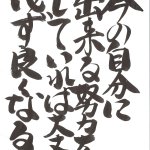 今の自分に
出来る努力を
していれば大丈
必ず良くなる